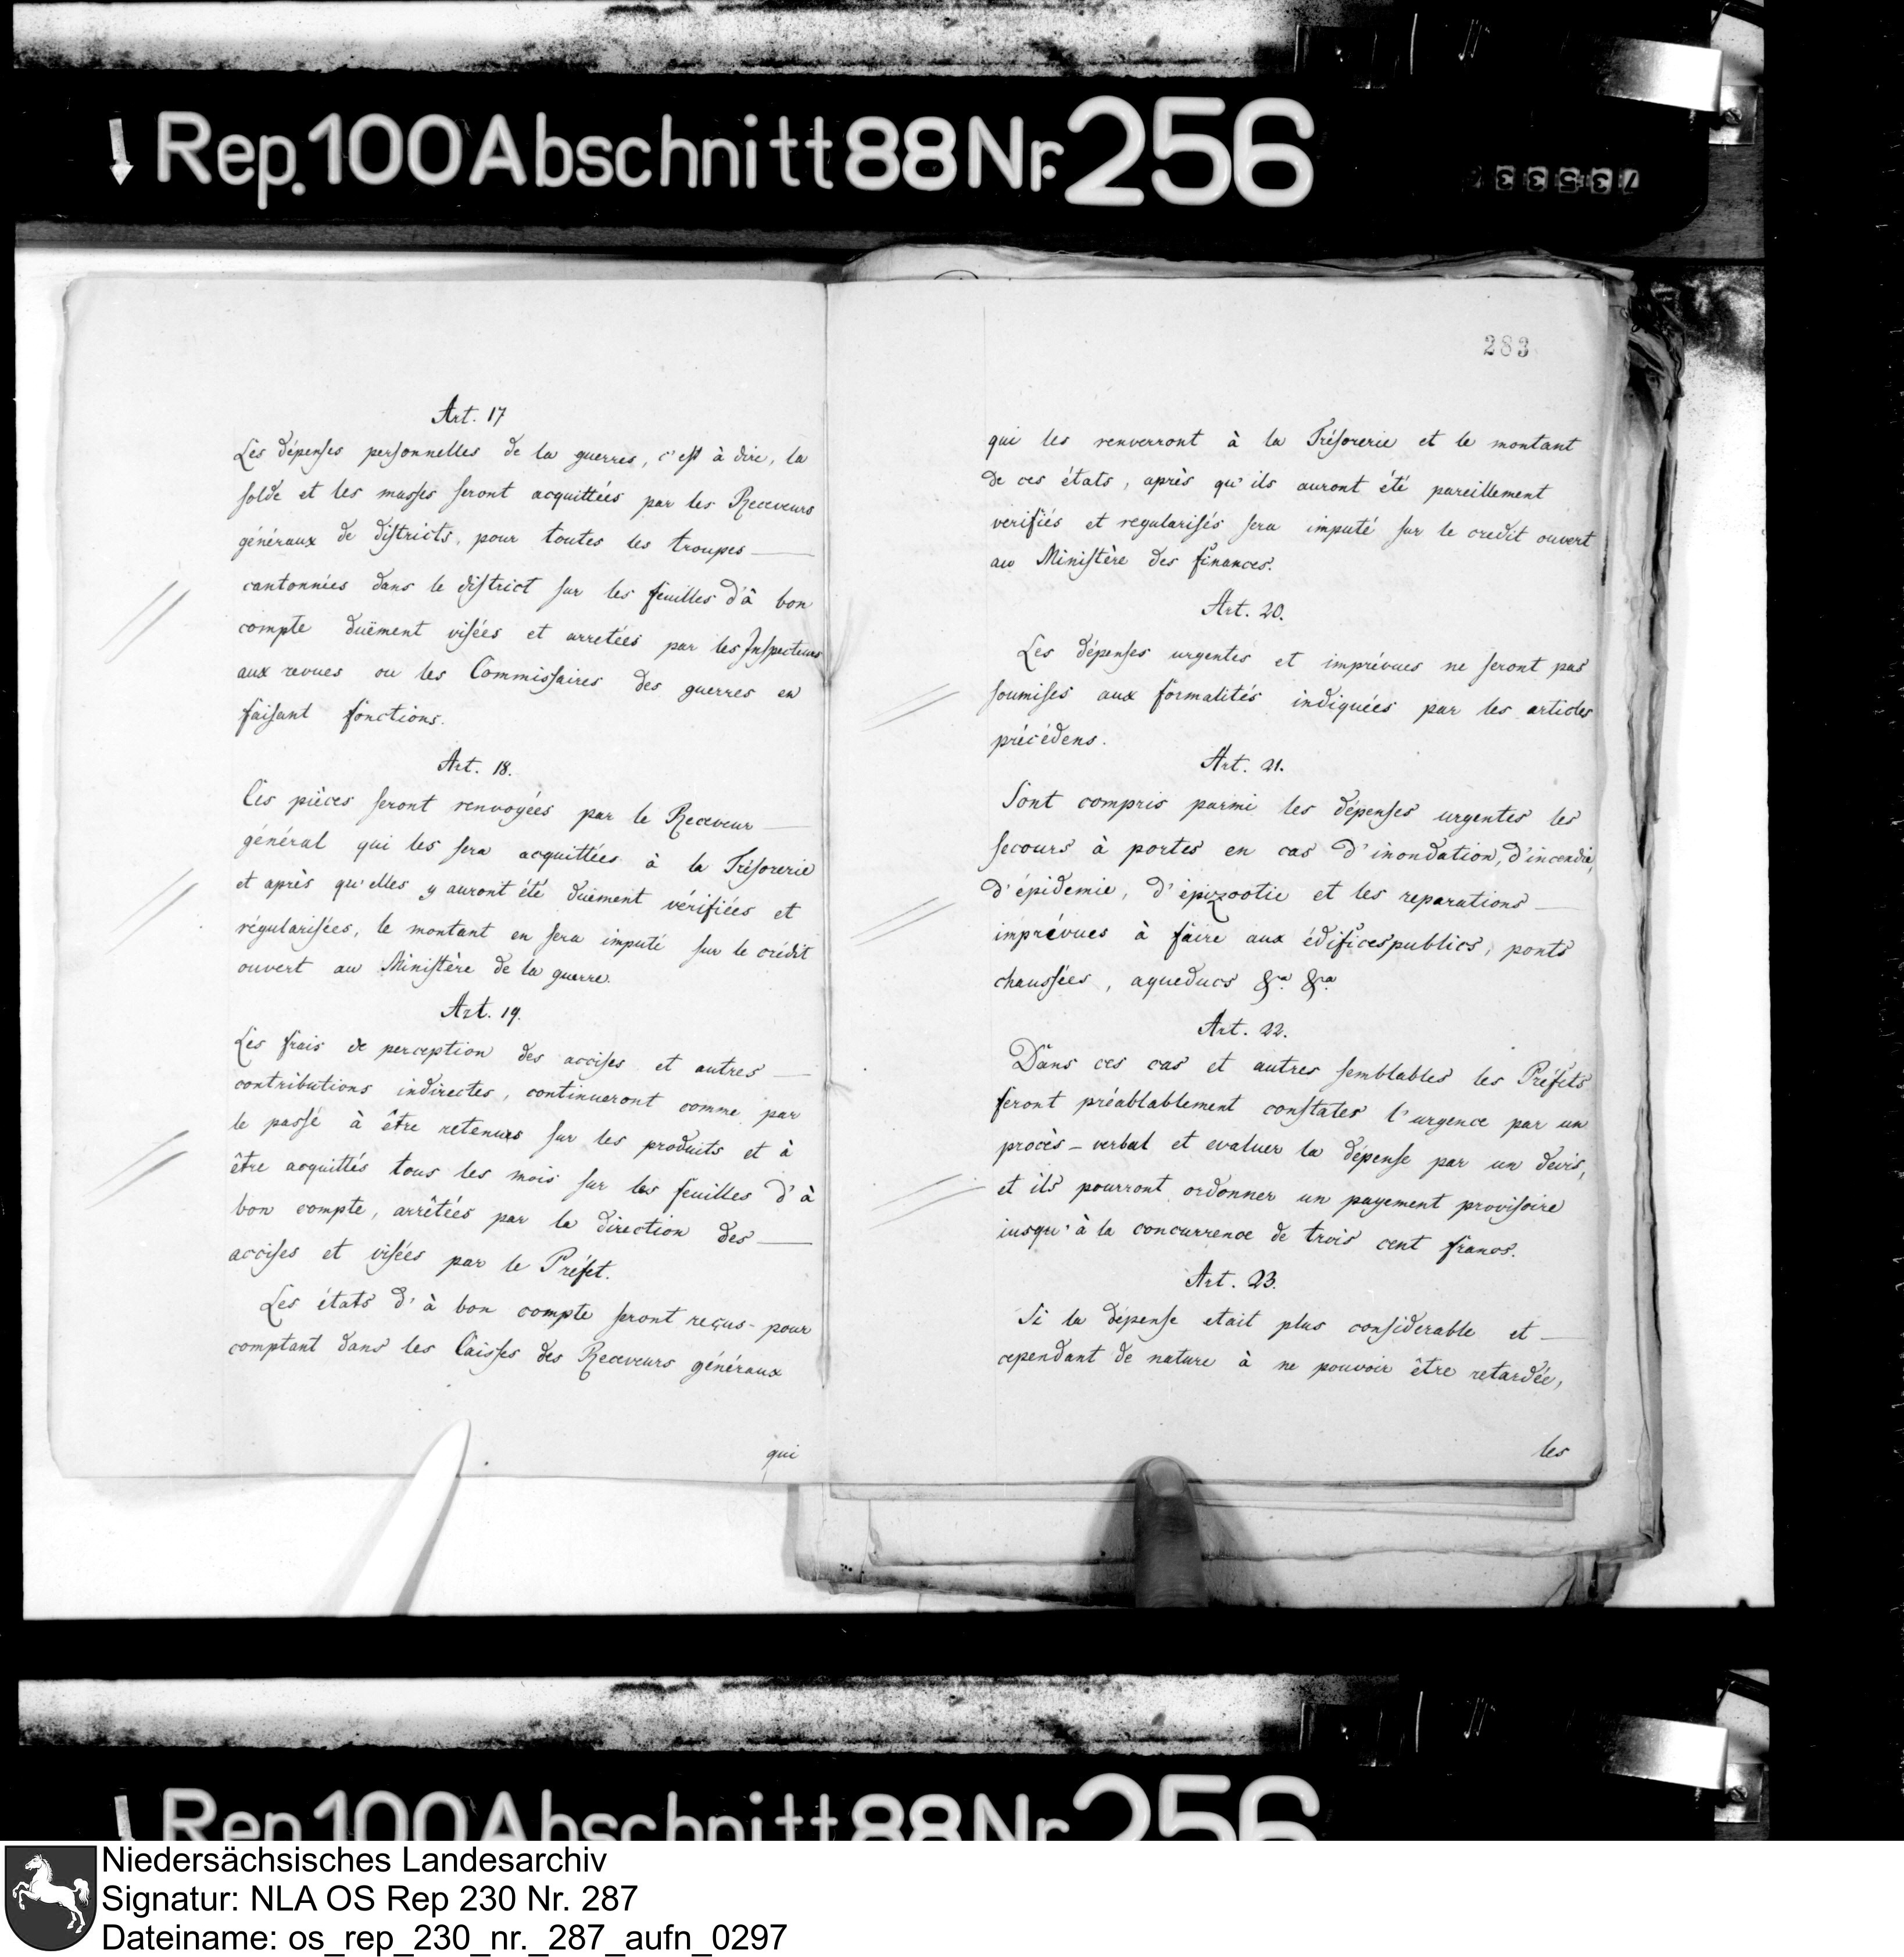 Rep. 100 Abschnitt 88 Nr. 256
283
Art. 17
Les dépenses personnelles de la guerres, c'est à dire, la
solde et les masses seront acquittées par les Receveurs
généraux de districts, pour toutes les troupes —
cantonnées dans le district sur les feuilles d'à bon
compte duëment visées et arretées par les Inspecteurs
aux revues ou les Commissaires des guerres en
faisant fonctions.
Art. 18.
Ces pièces seront renvoyées par le Receveur —
général qui les sera acquittées à la Trésorerie
et après qu'elles y auront été duement vérifiées et
régularisées, le montant en sera imputé sur le crédit
ouvert au Ministère de la guerre.
Art. 19.
Les frais de perception des accises et autres —
contributions indirectes, continueront comme par
le passé à être retenues sur les produits et à
être acquittés tous les mois sur les feuilles d'à
bon compte, arrêtées par la direction des —
accises et visées par le Préfet.
Les états d'à bon compte seront reçus - pour
comptant dans les Caisses des Receveurs généraux
qui
qui les renverront à la Trésorerie et le montant
de ces états, après qu'ils auront été pareillement
verifiés et regularisés sera imputé sur le credit ouvert
au Ministère des finances.
Art. 20.
Les dépenses urgentes et imprévues ne seront pas
soumises aux formalités indiquées par les articles
précédens.
Art. 21.
Sont compris parmi les dépenses urgentes les
secours à portes en cas d'inondation, d'incendie,
d'épidemie, d'épizootie et les reparations —
imprévues à faire aux édifices publics, ponts
chaussées, aqueducs &a &a
Art. 22.
Dans ces cas et autres semblables les Préfets
feront préablablement constates l'urgence par un
procès-verbal et evaluer la dépense par un devis,
et ils pourront ordonner un payement provisoire
iusqu'à la concurrence de trois cent francs.
Art. 23.
Si la dépense etait plus considerable et —
cependant de nature à ne pouvoir être retardée,
les
Rep. 100 Abschnitt 88 Nr. 256
Niedersächsisches Landesarchiv
Signatur: NLA OS Rep 230 Nr. 287
Dateiname: os_rep_230_nr._287_aufn_0297